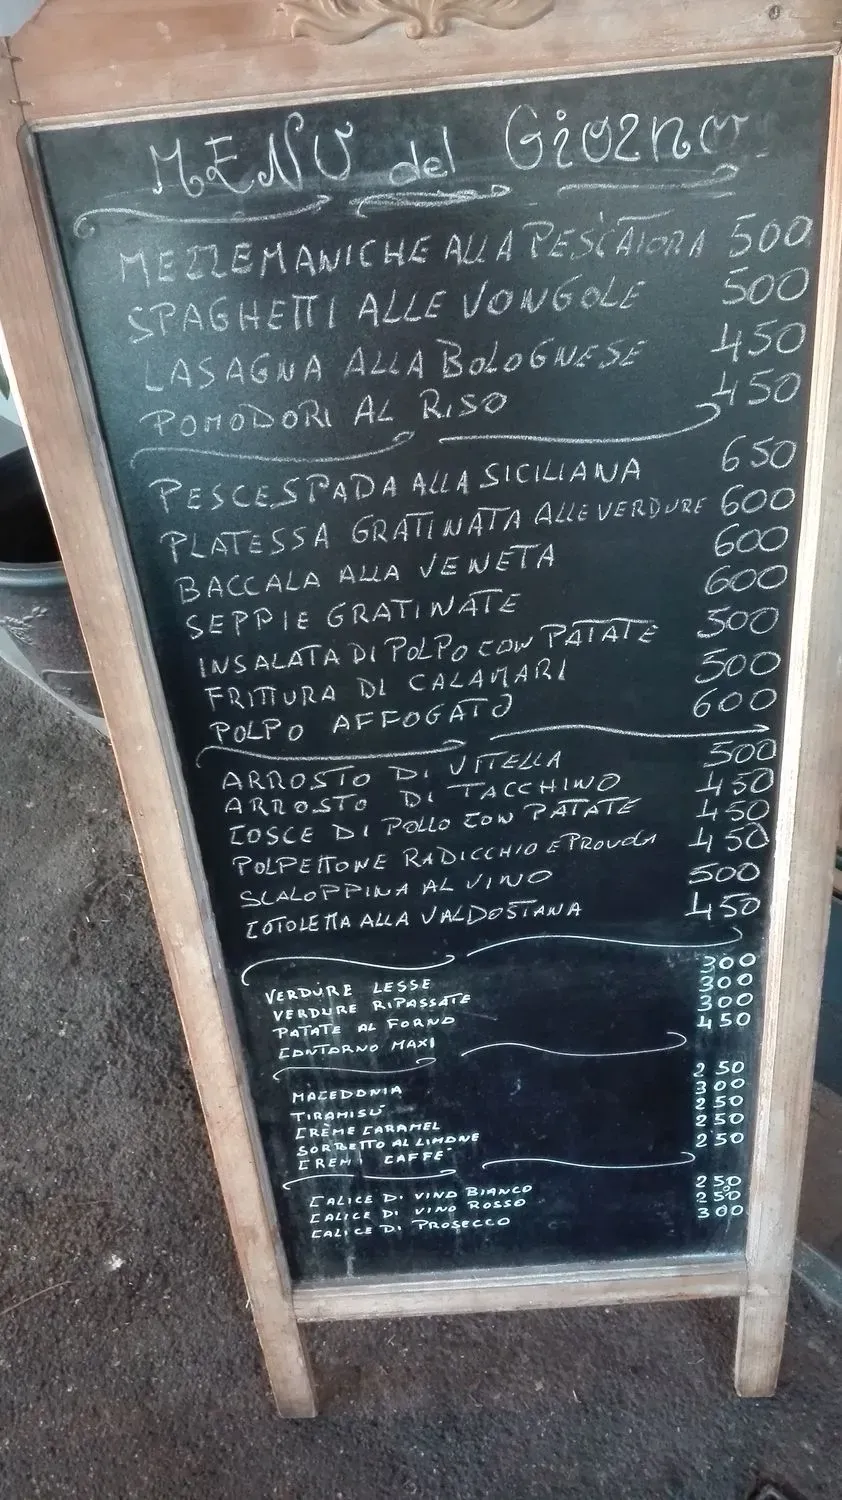 MENU del GiORNO
MEZZEMANICHE ALLA PESCATORA 500
SPAGHETTI ALLE VONGOLE 500
LASAGNA ALLA BOLOGNESE 450
POMODORI AL RISO 450
PESCESPADA ALLA SICILIANA 650
PLATESSA GRATINATA ALLE VERDURE 600
BACCALA ALLA VENETA 600
SEPPIE GRATINATE 600
INSALATA DI POLPO CON PATATE 500
FRITTURA DI CALAMARI 500
POLPO AFFOGATO 600
ARROSTO DI VITELLA 500
ARROSTO DI TACCHINO 450
COSCE DI POLLO CON PATATE 450
POLPETTONE RADICCHIO E PROVOLA 450
SCALOPPINA AL VINO 500
COTOLETTA ALLA VALDOSTANA 450
VERDURE LESSE 300
VERDURE RIPASSATE 300
PATATE AL FORNO 300
CONTORNO MAXI 450
MACEDONIA 250
TIRAMISÙ 300
CRÈME CARAMEL 250
SORBETTO AL LIMONE 250
CREMI CAFFE' 250
CALICE DI VINO BIANCO 250
CALICE DI VINO ROSSO 250
CALICE DI PROSECCO 300